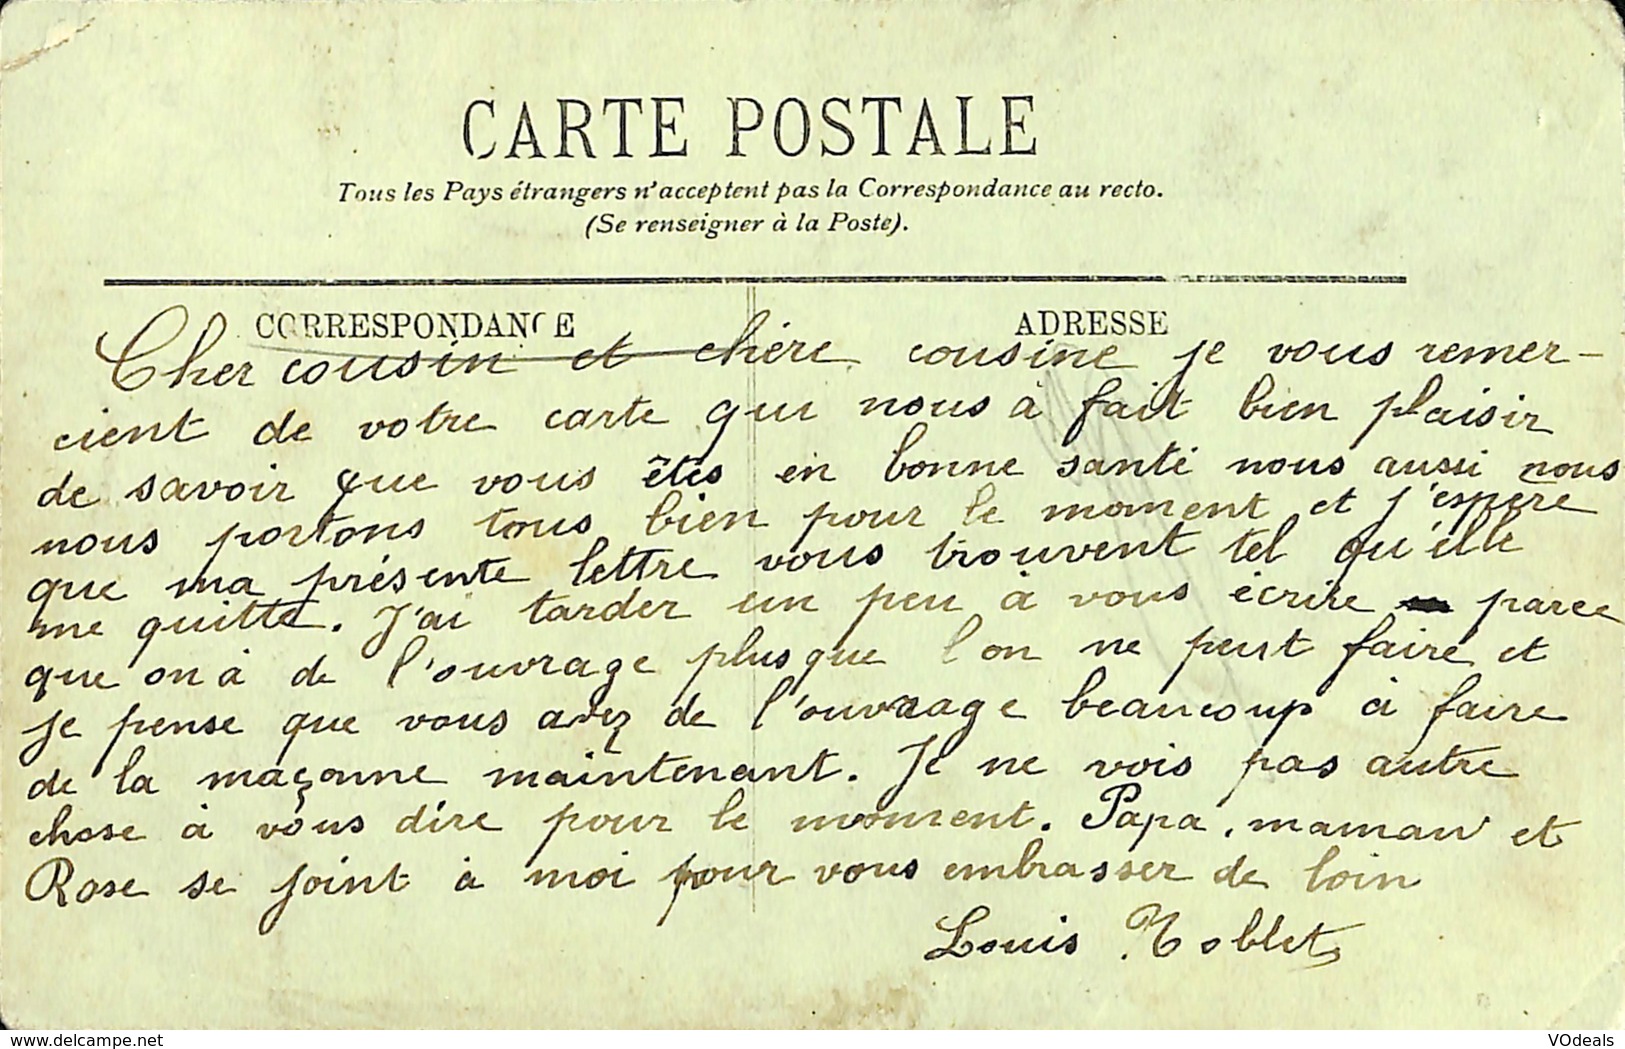 CARTE POSTALE
Tous les Pays étrangers n'acceptent pas la Correspondance au recto.
(Se renseigner à la Poste).
CORRESPONDANCE
ADRESSE
Cher cousin et chère cousine je vous remer-
cient de votre carte qui nous à fait bien plaisir
de savoir que vous êtes en bonne santé nous aussi nous
nous portons tous bien pour le moment et j'espère
que ma présente lettre vous trouvent tel qu'elle
me quitte. J'ai tarder un peu à vous écrire parce
que on à de l'ouvrage plus que l'on ne peut faire et
je pense que vous avez de l'ouvrage beaucoup à faire
de la maçonne maintenant. Je ne vois pas autre
chose à vous dire pour le moment. Papa, maman et
Rose se joint à moi pour vous embrasser de loin
Louis Noblet
delcampe.net
VOdeals